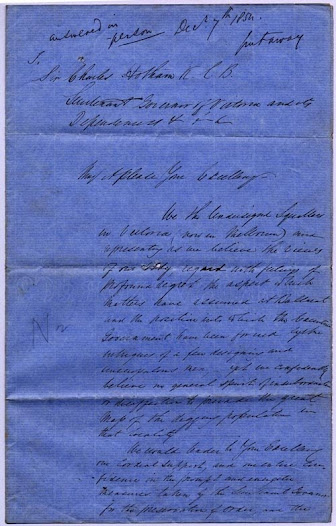 answered in
person Dec 7th 1854.
put away
To
Sir Charles Hotham K. C. B.
Lieutenant Governor of Victoria and its
Dependencies &c &c
May it please Your Excellency
We the Undersigned Squatters
in Victoria now in Melbourne and
representing as we believe the views
of our body regard with feelings of
profound regret the aspect which
matters have assumed at Ballarat
and the position into which the
Government has been forced by the
intrigues of a few designing and
unscrupulous men yet we confidently
believe no general spirit of
or disaffection to the great
mass of the digging population in
that locality
We would tender to Your Excellency
our cordial support and
confidence in the prompt and energetic
measures taken by the
for the preservation of order and the